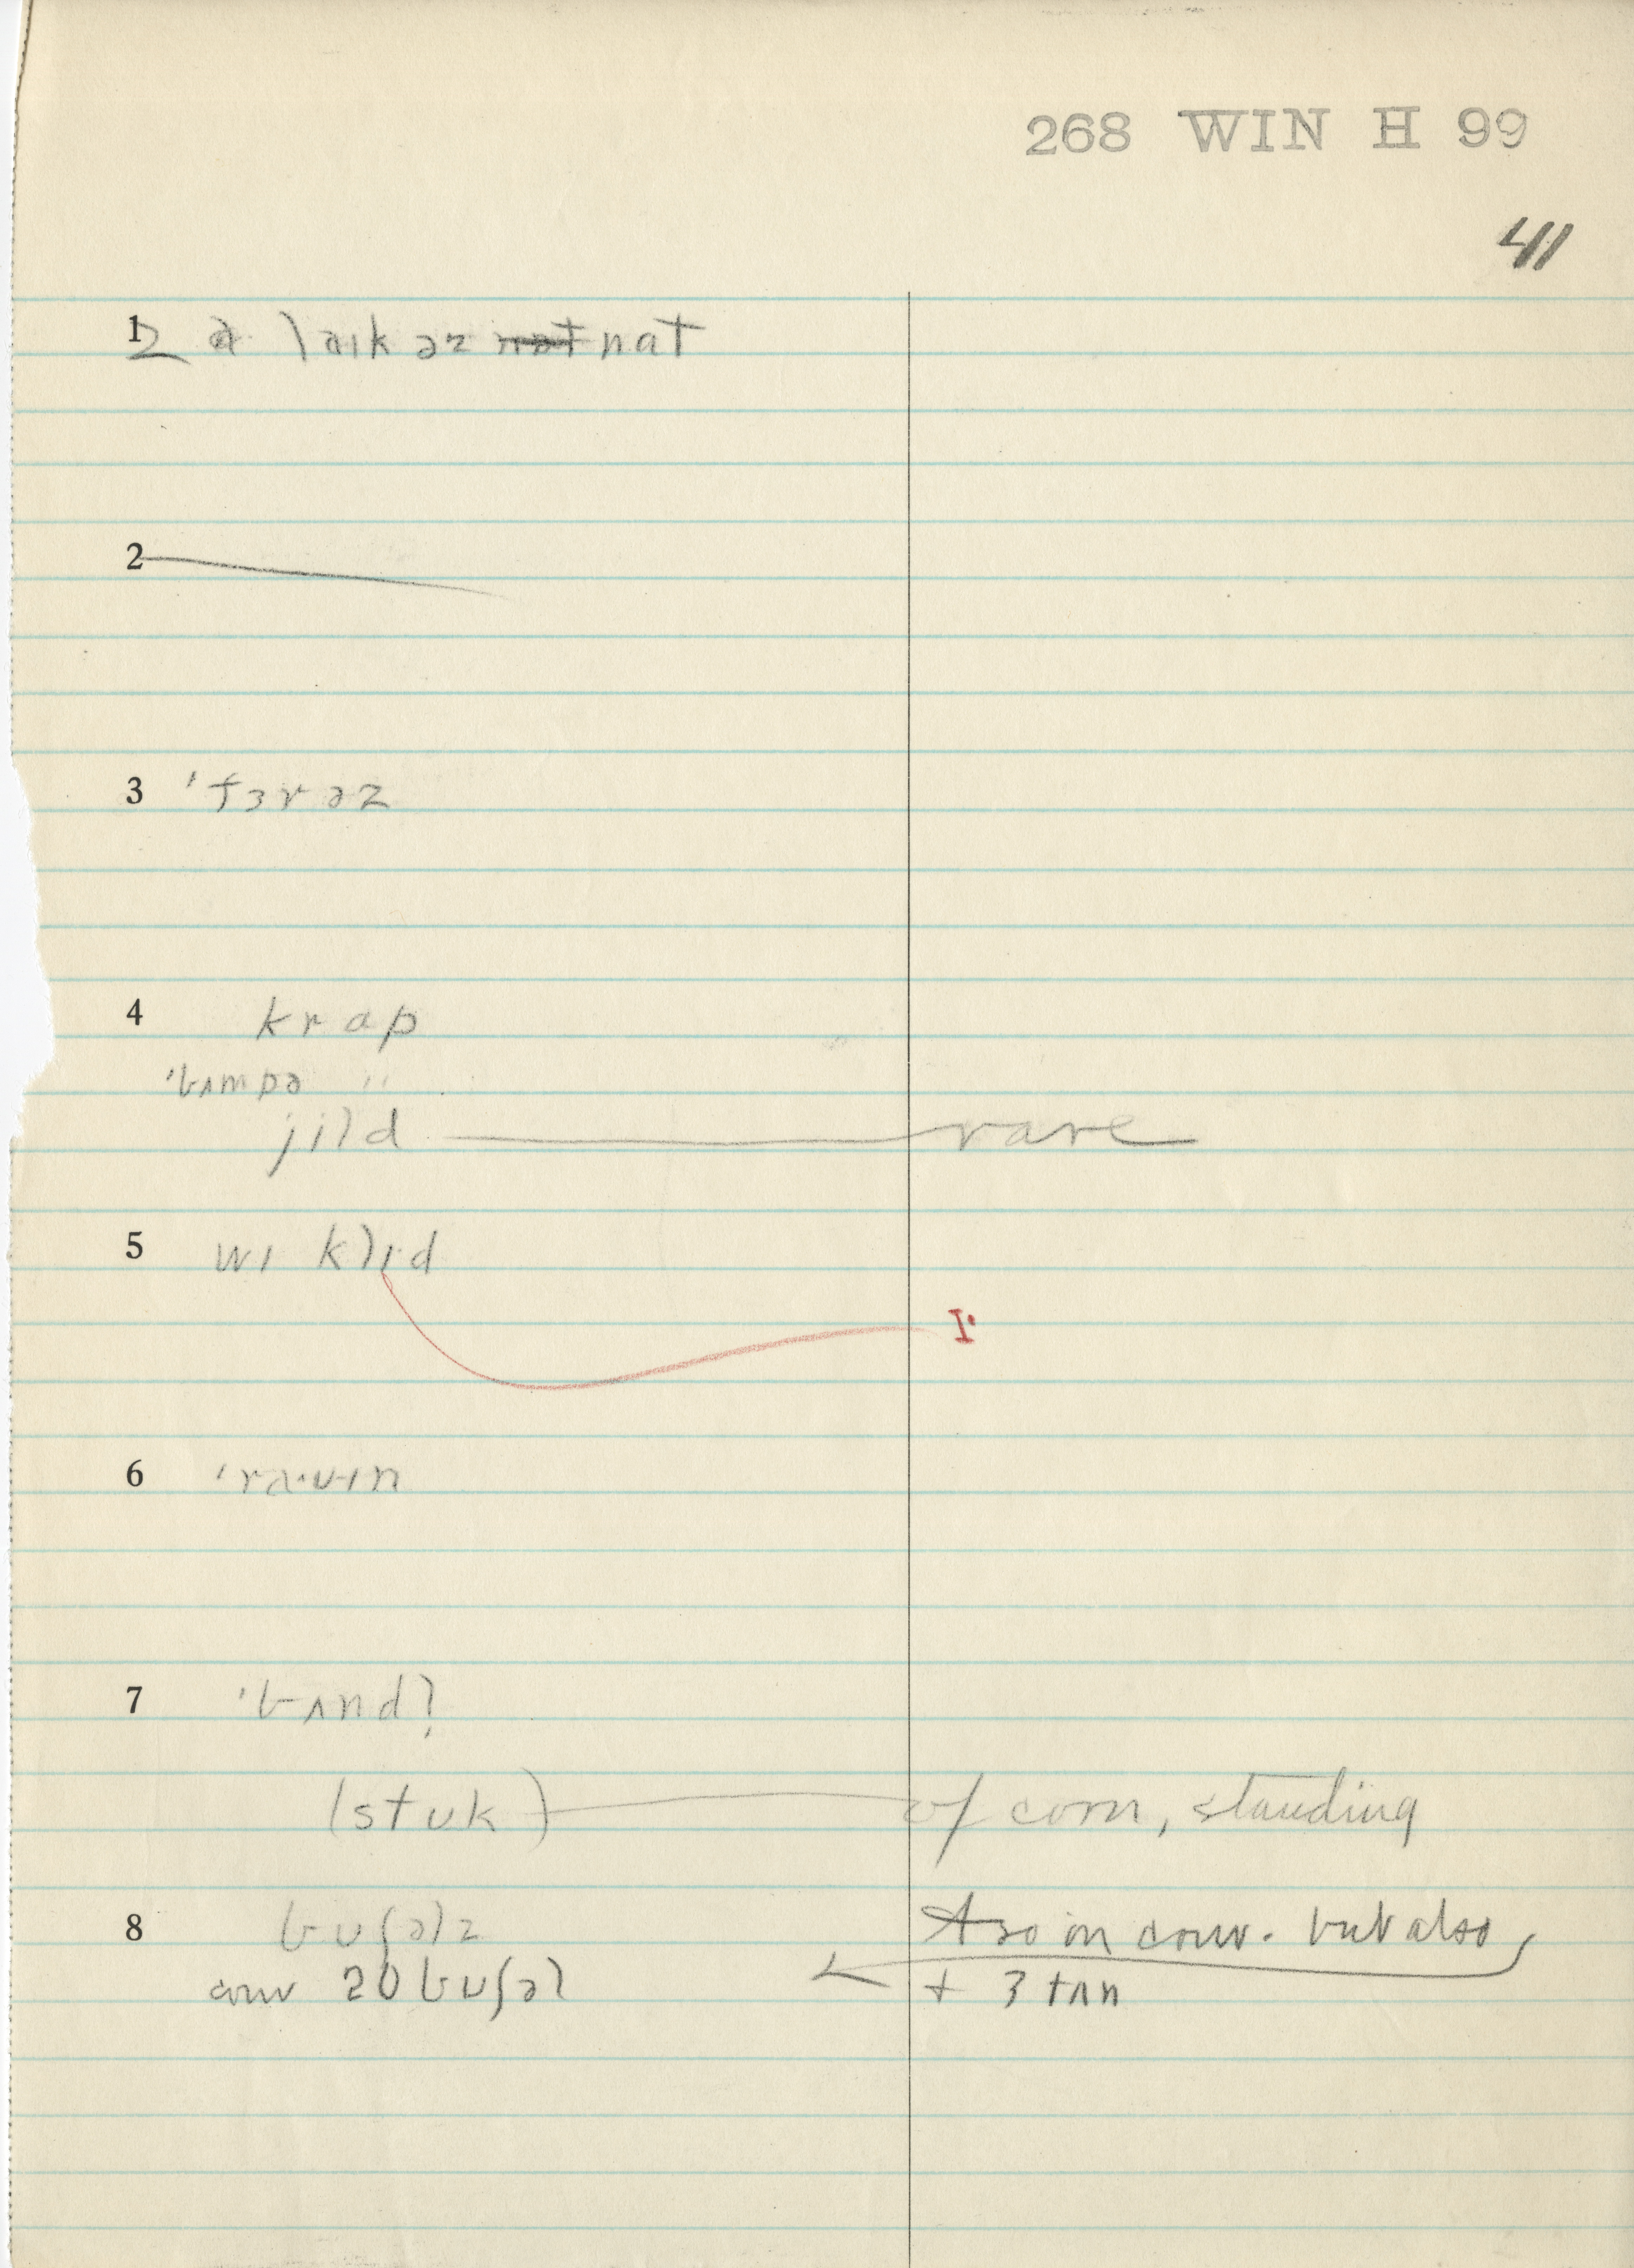 268 WIN H 99
41
1 2 a laɪk əz nat nat
2
3 'fɜrəz
4 krap
'bʌmpə "
jild rare
5 wɪ klɪ·d
ɪ·
6 'ra·vɪn
7 'bʌndl̩
(stʊk) of corn, standing
8 bʊʃəlz & so in conv. but also
conv 20 bʊʃəl + 3 tʌn